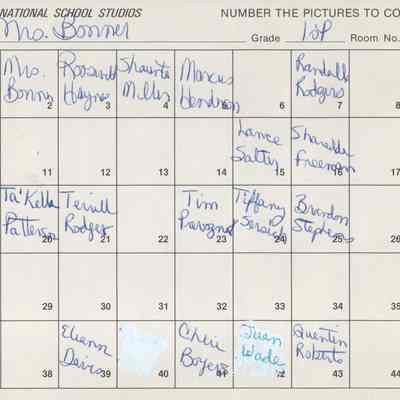 NATIONAL SCHOOL STUDIOS NUMBER THE PICTURES TO CO
Mrs. Bonner Grade 1st Room No.
Mrs. Bonner 2
3
Shaunta Miller 4
Marcus 5
6
Randall Rodgers 7
8
11
12
13
14
Lance Salter 15
16
17
Ta'Kella Patterson 20
Terrill Rodgers 21
22
Tim 23
Tiffany 24
Brandon Stephens 25
26
29
30
31
32
33
34
35
38
Eleanor Davis 39
40
Cherie Boyers 41
Juan Wade 42
Quentin Roberts 43
44